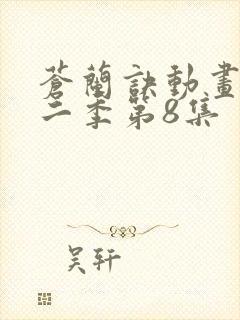 蒼蘭訣動畫
二季第8集
吴轩